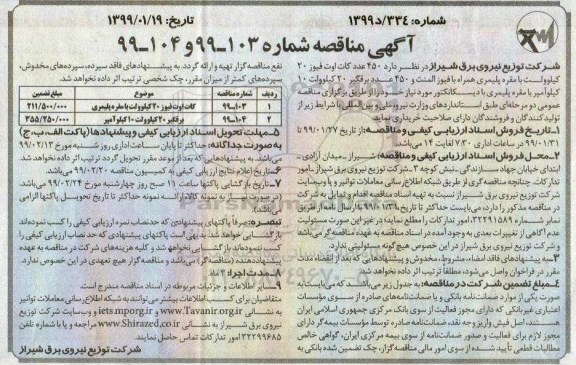 شماره: ۳۳۴/د۱۳۹۹
تاریخ: ۱۳۹۹/۰۱/۱۹
آگهی مناقصه شماره ۱۰۳-۹۹ و ۱۰۴-۹۹
شرکت توزیع نیروی برق شیراز در نظر دارد ۴۵۰ عدد کات اوت فیوز ۲۰
کیلوولت با مقره پلیمری همراه با فیوز المنت و ۴۵۰ عدد برقگیر ۲۰ کیلوولت ۱۰
کیلوآمپر با مقره پلیمری با دیسکانکتور مورد نیاز خود را از طریق برگزاری مناقصه
عمومی دو مرحله‌ای طبق استانداردهای وزارت نیرو، ملی و بین‌المللی با شرایط زیر از
تولیدکنندگان و فروشندگان دارای صلاحیت خریداری نماید.
۱-تاریخ فروش اسناد ارزیابی کیفی و مناقصه: از تاریخ ۹۹/۰۱/۲۷ تا
۹۹/۰۱/۳۱ در ساعات اداری ۷:۳۰ لغایت ۱۴ می‌باشد.
۲-محل فروش اسناد ارزیابی کیفی و مناقصه: شیراز - میدان آزادی -
ابتدای خیابان جهاد سازندگی - نبش کوچه ۳ - شرکت توزیع نیروی برق شیراز - امور
تدارکات. چنانچه مناقصه‌گری از طریق شبکه اطلاع رسانی معاملات توانیر و یا وب‌سایت
شرکت توزیع نیروی برق شیراز نسبت به تهیه اسناد مناقصه اقدام و تمایل به شرکت
در مناقصه مذکور را دارد، می‌بایست حداکثر تا تاریخ
نمابر شماره ۳۲۲۹۱۵۸۹ امور تدارکات را مطلع نماید؛ در غیر این صورت مسئولیت
عدم آگاهی از تغییرات بعدی به وجود آمده در اسناد مناقصه به عهده مناقصه‌گر می‌باشد
و شرکت توزیع نیروی برق شیراز در این خصوص هیچ گونه مسئولیتی ندارد.
۳-به پیشنهادهای فاقد امضاء، مشروط، مخدوش و پیشنهادهایی که بعد از انقضاء مدت
مقرر در فراخوان واصل می‌شود، مطلقاً ترتیب اثر داده نخواهد شد.
۴-مبلغ تضمین شرکت در مناقصه: به جدول زیر می‌باشد که می‌بایست به
صورت یکی از موارد ضمانت‌نامه بانکی و یا ضمانت‌نامه‌های صادره از سوی مؤسسات
اعتباری غیربانکی که دارای مجوز فعالیت از سوی بانک مرکزی جمهوری اسلامی ایران
هستند، اصل فیش واریز وجه نقد، ضمانت‌نامه صادره توسط مؤسسات بیمه‌گر دارای
مجوز لازم برای فعالیت و صدور ضمانت‌نامه از سوی بیمه مرکزی ایران، گواهی خالص
مطالبات قطعی تأیید شده از سوی امور مالی مناقصه‌گزار، چک تضمین شده بانکی به
نفع مناقصه گزار تهیه و ارائه گردد. به پیشنهادهای فاقد سپرده، سپرده‌های مخدوش،
سپرده‌های کمتر از میزان مقرر، چک شخصی ترتیب اثر داده نخواهد شد.
ردیف شماره مناقصه موضوع مبلغ تضمین
۱ ۱۰۳-۹۹ کات اوت فیوز ۲۰ کیلوولت با مقره پلیمری ۲۱۱/۵۰۰/۰۰۰
۲ ۱۰۴-۹۹ برقگیر ۲۰ کیلوولت ۱۰ کیلوآمپر ۳۵۵/۲۵۰/۰۰۰
۵-مهلت تحویل اسناد ارزیابی کیفی و پیشنهادها (پاکت الف، ب، ج)
به صورت جداگانه: حداکثر تا پایان ساعت اداری روز شنبه مورخ ۹۹/۰۲/۱۳
می‌باشد. به پیشنهادهایی که بعد از موعد مقرر تحویل گردد ترتیب اثر داده نخواهد شد.
۶-تاریخ اعلام نتایج ارزیابی کیفی به کمیسیون مناقصه ۹۹/۰۲/۲۰ می‌باشد.
۷-تاریخ بازگشایی پاکتها ساعت ۱۱ صبح روز چهارشنبه مورخ ۹۹/۰۲/۲۴ می‌باشد.
در صورت نیاز به نمونه کالا، ارائه نمونه حداکثر تا تاریخ تحویل پاکتها الزامی
می‌باشد.
تبصره: صرفاً پاکتهای پیشنهادی که حد نصاب نمره ارزیابی کیفی را کسب نموده‌اند
بازگشایی خواهد شد. بدیهی است پاکتهای پیشنهادی که حد نصاب ارزیابی کیفی را
کسب ننموده‌اند بازگشایی نخواهد شد و کلیه هزینه‌های شرکت در مناقصه به عهده
پیشنهاددهنده (مناقصه‌گر) می‌باشد و مناقصه گزار هیچ تعهدی در این خصوص ندارد.
۸-مدت اجرا: ۲ ماه
۹-سایر اطلاعات و جزئیات مربوطه در اسناد مناقصه مندرج است.
متقاضیان برای کسب اطلاعات بیشتر می‌توانند به شبکه اطلاع رسانی معاملات توانیر
به نشانی www.Tavanir.org.ir و iets.mporg.ir و وب‌سایت شرکت توزیع
نیروی برق شیراز به نشانی www.Shirazed.co.ir مراجعه و یا با شماره تلفن
۳۲۲۹۹۶۸۵ امور تدارکات تماس حاصل نمایند.
شرکت توزیع نیروی برق شیراز